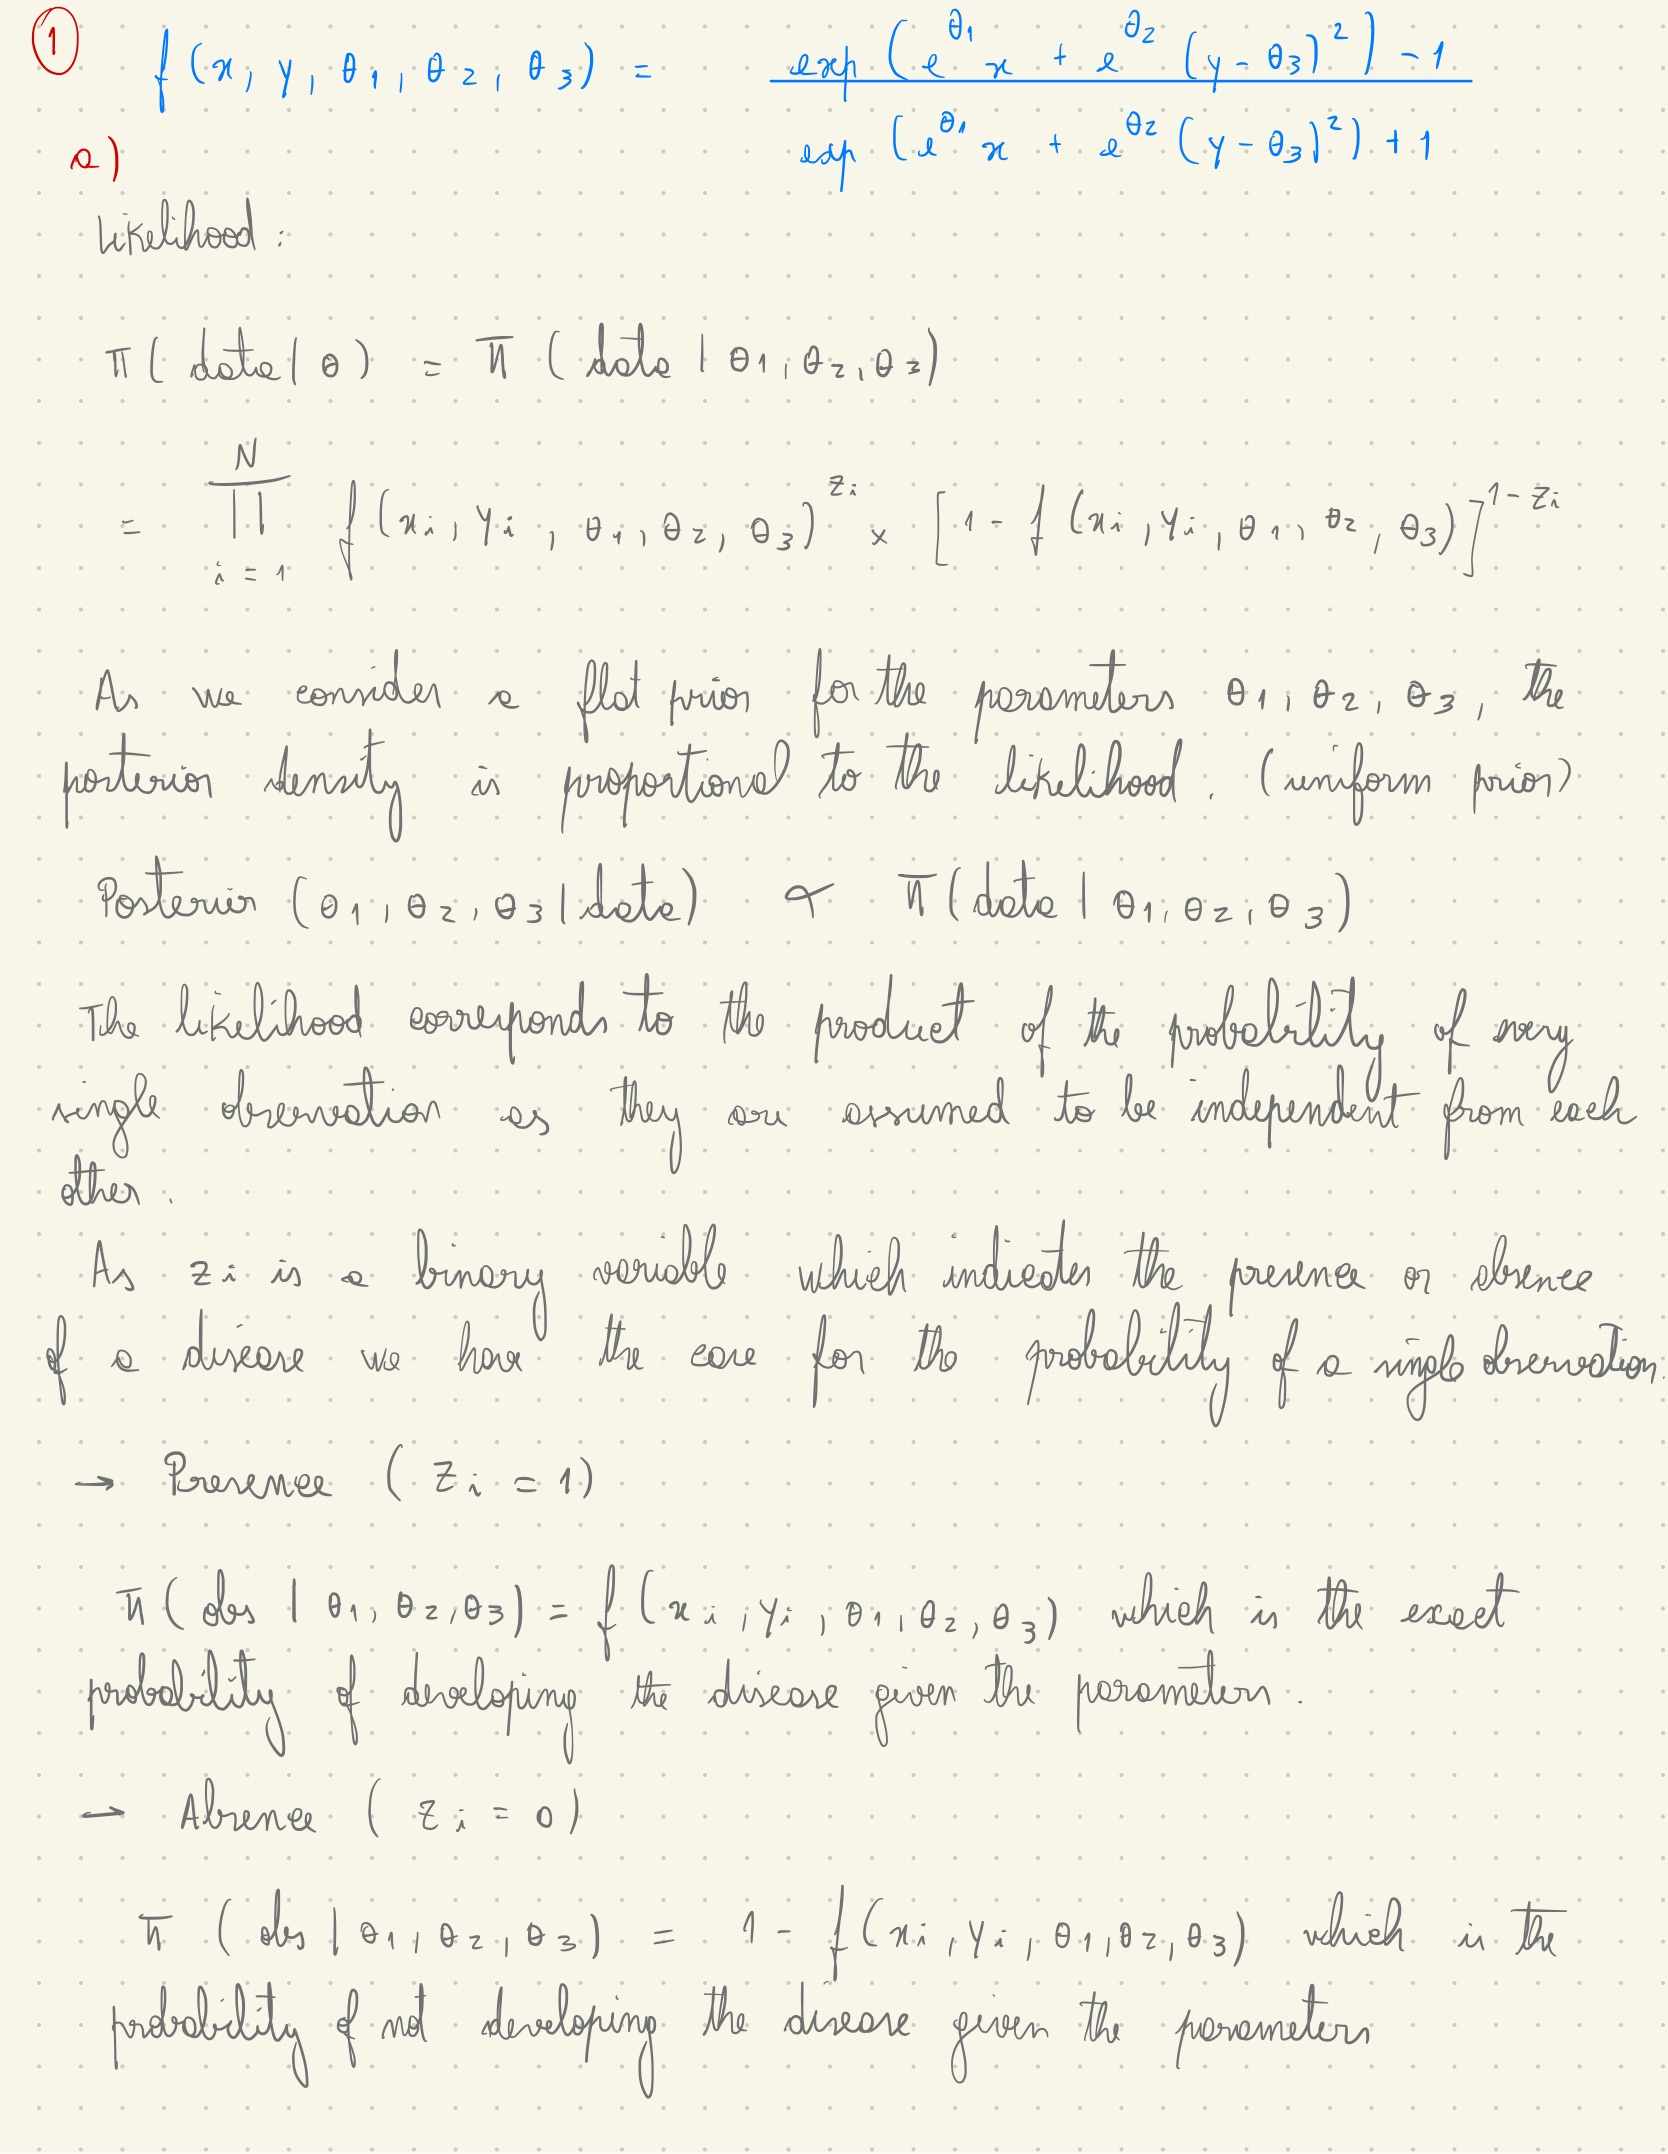 1
f(x, y, θ1, θ2, θ3) = exp(e^θ1 x + e^θ2 (y - θ3)^2) - 1 / exp(e^θ1 x + e^θ2 (y - θ3)^2) + 1
a)
Likelihood:
π(data | θ) = π(data | θ1, θ2, θ3)
= ∏_{i=1}^{N} f(xi, yi, θ1, θ2, θ3)^zi × [1 - f(xi, yi, θ1, θ2, θ3)]^{1-zi}
As we consider a flat prior for the parameters θ1, θ2, θ3, the
posterior density is proportional to the likelihood. (uniform prior)
Posterior (θ1, θ2, θ3 | data) ∝ π(data | θ1, θ2, θ3)
The likelihood corresponds to the product of the probability of every
single observation as they are assumed to be independent from each
other.
As zi is a binary variable which indicates the presence or absence
of a disease we have the case for the probability of a single observation.
→ Presence (zi = 1)
π(obs | θ1, θ2, θ3) = f(xi, yi, θ1, θ2, θ3) which is the exact
probability of developing the disease given the parameters.
→ Absence (zi = 0)
π(obs | θ1, θ2, θ3) = 1 - f(xi, yi, θ1, θ2, θ3) which is the
probability of not developing the disease given the parameters